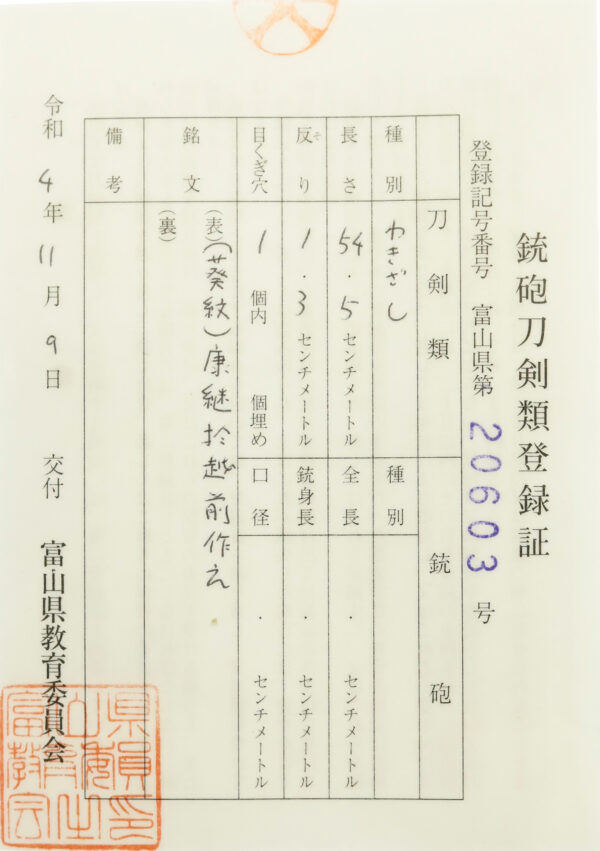 銃砲刀剣類登録証
登録記号番号 富山県第 20603 号
刀剣類 銃砲
種別 わきざし 種別
長さ 54.5センチメートル 全長 ・ センチメートル
反り 1.3センチメートル 銃身長 ・ センチメートル
そ
目くぎ穴 1個内 個埋め 口径 ・ センチメートル
銘文 (表)(葵紋)康継於越前作之
(裏)
備考
令和4年11月9日 交付 富山県教育委員会